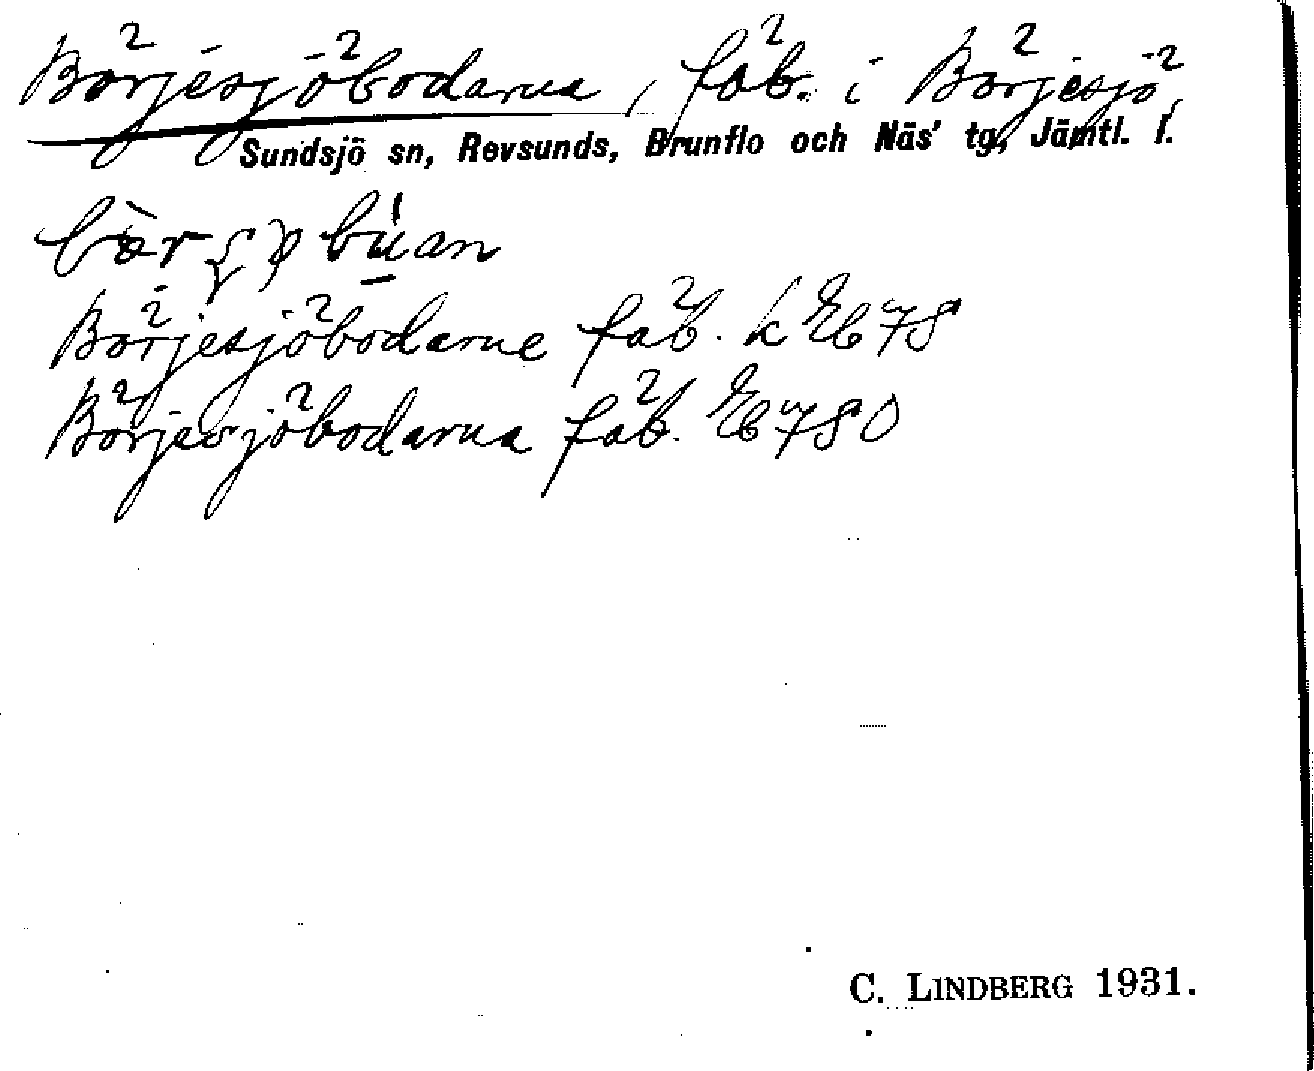 Börjesjöbodarna, fäb. i Börjesjö,
Sundsjö sn, Revsunds, Brunflo och Näs' tg, Jämtl. l.
Börjesjöbodarne fäb. k Eb 78
Börjesjöbodarna fäb. Eb 780
C. LINDBERG 1931.